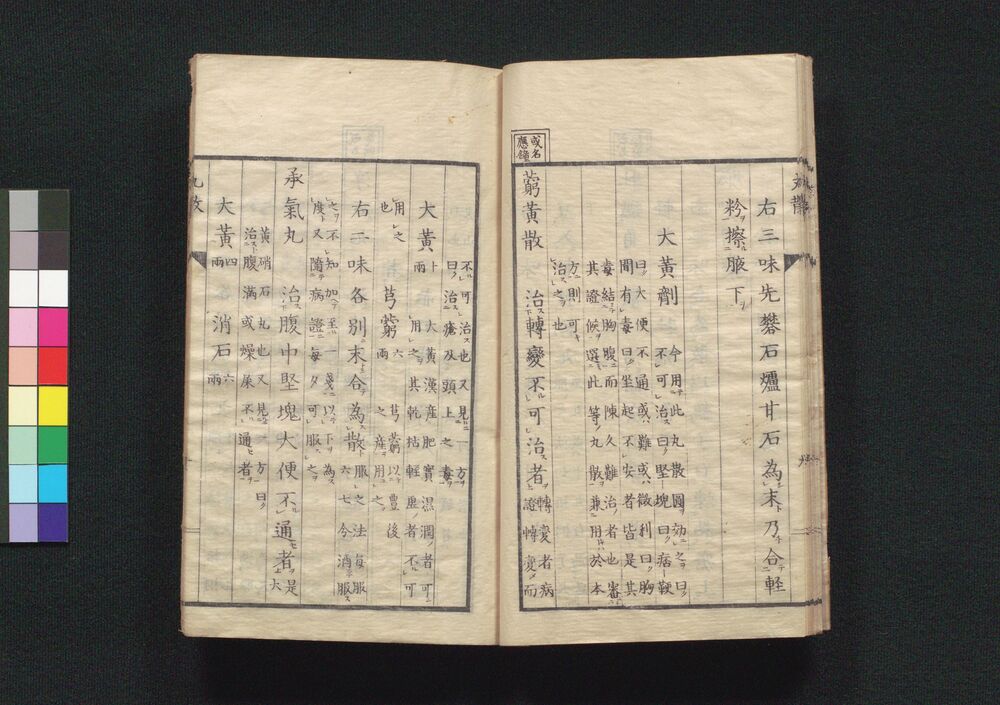 右三味先礬石爐甘石為末乃合軽
粉擦腋下
大黄劑
今用此丸散圓効之曰
不可治曰堅塊曰痞鞕
曰大便不通或難或微利曰胸
間有毒曰坐起不安者皆是其
毒結胸腹而陳久難治者也審
其證候選此等丸散兼用於本
方則可
治之也
或名
應鐘
藭黄散
治轉變不可治者
轉変者病
證轉変而
不可治也又見一方
曰治瘡及頭上之毒
大黄
十
兩
大黄漢産肥實濕潤者可
用之其乾枯軽虚者不可
用之
也
芎藭
六
兩
芎藭以豊後
之産用之
右二味各別末合為散
服之法毎服
六七今消服
之不知加至一錢以下為
度又隨病證毎夕可服之
承氣丸
治腹中堅塊大便不通者
是
大
黄硝石丸也又見一方曰
治腹滿或燥屎不通者
大黄
四
兩
消石
六
兩
丸散